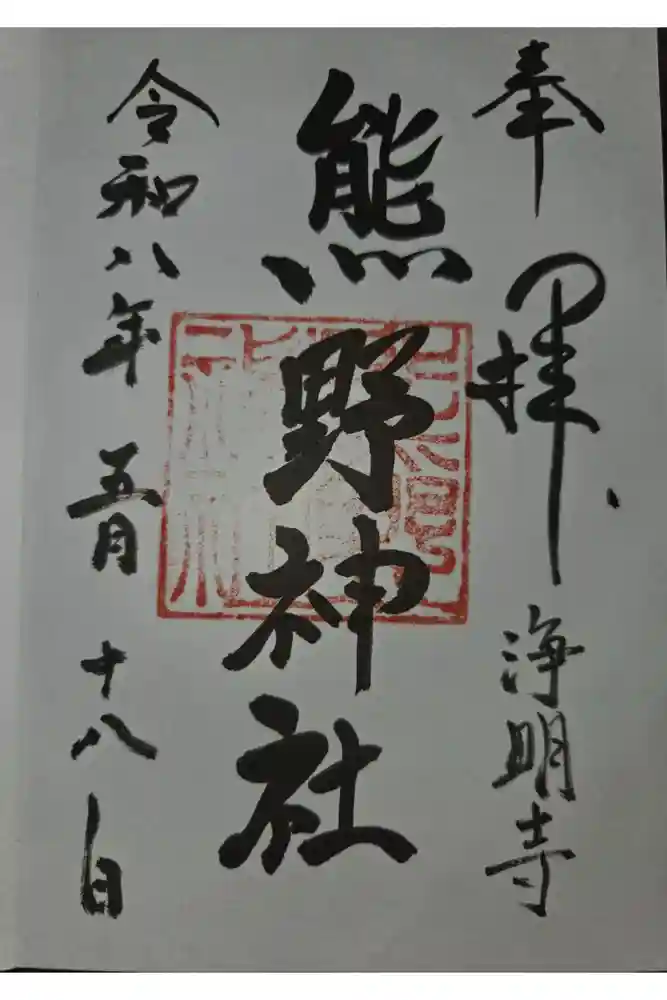 奉拝
浄明寺
熊野神社
令和八年五月十八日